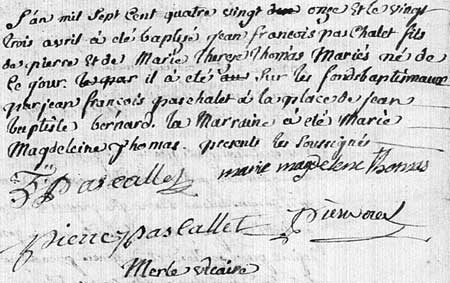 L'an mil Sept Cent quatre vingt onze et le vingt
trois avril a eté baptisé jean françois pasChalet fils
de pierre Et de Marie Therese Thomas Mariés né de
Ce jour. il a eté Sur les fonds baptimaux
par jean françois paschalet a la place de jean
baptiste bernard. la Marraine a eté Marie
Magdeleine Thomas. presents les Soussignés
Pascallet marie magdelene thomas
pierre pascallet
Merle vicaire